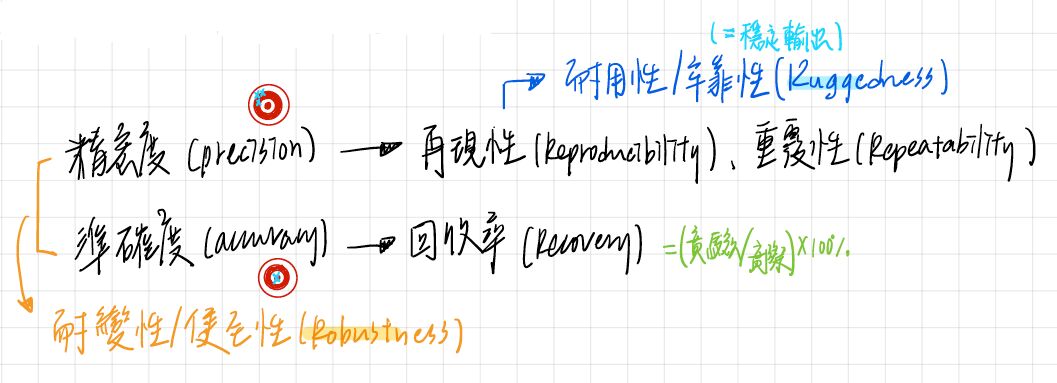 (=穩定輸出)
耐用性/牢靠性(Ruggedness)
精密度 (precision) → 再現性(Reproducibility)、重覆性(Repeatability)
準確度 (accuracy) → 回收率 (Recovery) =(實驗/實際)×100%
耐變性/健全性(Robustness)